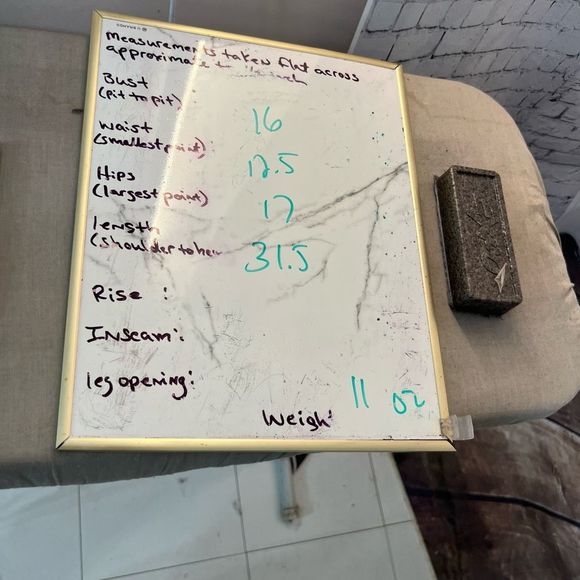 Measurements taken flat across
approximate to 1/2 inch
Bust
(pit to pit) 16
Waist
(smallest point) 12.5
Hips
(largest point) 17
length
(shoulder to hem 31.5
Rise :
Inseam:
leg opening:
Weigh 11 oz